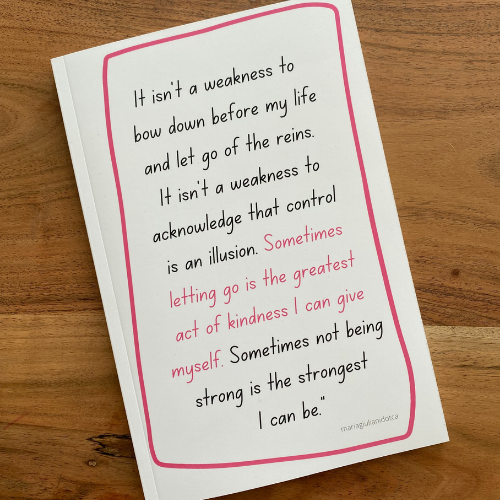 It isn't a weakness to
bow down before my life
and let go of the reins.
It isn't a weakness to
acknowledge that control
is an illusion. Sometimes
letting go is the greatest
act of kindness I can give
myself. Sometimes not being
strong is the strongest
I can be."